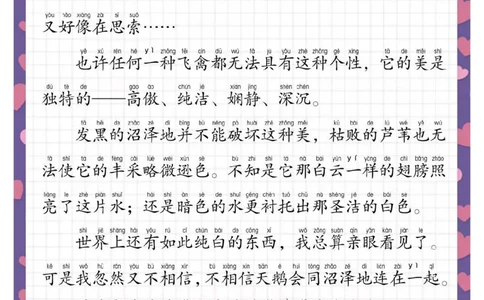 yòu hǎo xiàng zài sī suǒ
又好像在思索……
yě xǔ rèn hé yī zhǒng fēi qín dōu wú fǎ jù yǒu zhè zhǒng gè xìng tā de měi shì
也许任何一种飞禽都无法具有这种个性，它的美是
dú tè de gāo ào chún jié xián jìng shēn chén
独特的——高傲、纯洁、娴静、深沉。
fā hēi de zhǎo zé dì bìng bù néng pò huài zhè zhǒng měi kū bài de lú wěi yě wú
发黑的沼泽地并不能破坏这种美，枯败的芦苇也无
fǎ shǐ tā de fēng cǎi lüè wēi xùn sè bù zhī shì tā nà bái yún yí yàng de chì bǎng zhào
法使它的丰采略微逊色。不知是它那白云一样的翅膀照
liàng le zhè piàn shuǐ hái shì àn sè de shuǐ gèng chèn tuō chū nà shèng jié de bái sè
亮了这片水；还是暗色的水更衬托出那圣洁的白色。
shì jiè shàng hái yǒu rú cǐ chún bái de dōng xi wǒ zǒng suàn qīn yǎn kàn jiàn le
世界上还有如此纯白的东西，我总算亲眼看见了。
kě shì wǒ hū rán yòu bù xiāng xìn bù xiāng xìn tiān é huì tóng zhǎo zé dì lián zài yì qǐ
可是我忽然又不相信，不相信天鹅会同沼泽地连在一起。